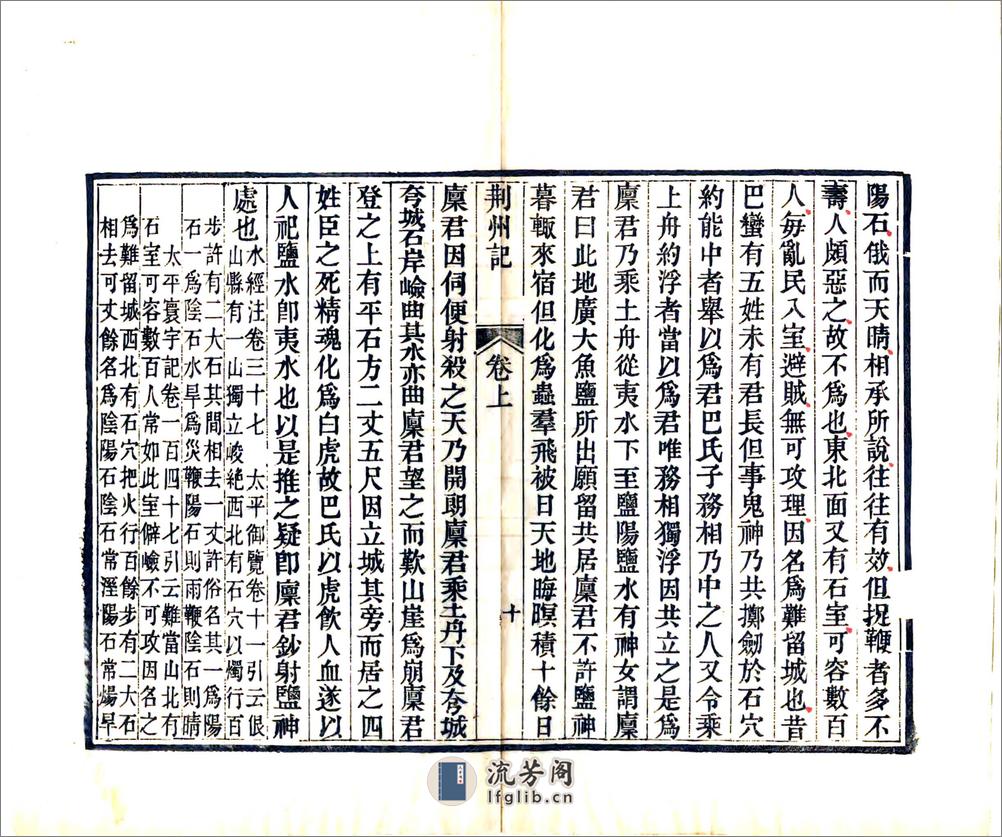 陽石俄而天晴相承所說往往有效但捉鞭者多不
壽人頗惡之故不爲也東北面又有石室可容數百
人每亂民入室避賊無可攻理因名爲難留城也昔
巴蠻有五姓未有君長但事鬼神乃共擲劒於石穴
約能中者舉以爲君巴氏子務相乃中之人又令乘
上舟約浮者當以爲君唯務相獨浮因共立之是爲
廩君乃乘土舟從夷水下至鹽陽鹽水有神女謂廩
君曰此地廣大魚鹽所出願留共居廩君不許鹽神
暮輒來宿但化爲蟲羣飛被日天地晦暝積十餘日
荆州記
卷上
十
廩君因伺便射殺之天乃開朗廩君乘土舟下及夸城
夸城石岸嶮曲其水亦曲廩君望之而歎山崖爲崩廩君
登之上有平石方二丈五尺因立城其旁而居之四
姓臣之死精魂化爲白虎故巴氏以虎飲人血遂以
人祀鹽水卽夷水也以是推之疑卽廩君鈔射鹽神
處也
水經注卷三十七 太平御覽卷十一引云佷
山縣有一山獨立峻絕西北有石穴以燭行百
步許有二大石其間相去一丈許俗名其一爲陽
石一爲陰石水旱爲災鞭陽石則雨鞭陰石則晴
太平寰宇記卷一百四十七引云難當山北有
石室可容數百人常如此室僻嶮不可攻因名之
爲難留城西北有石穴把火行百餘步有二大石
相去可丈餘名爲陰陽石陰石常溼陽石常煬旱
流芳阁
lfglib.cn